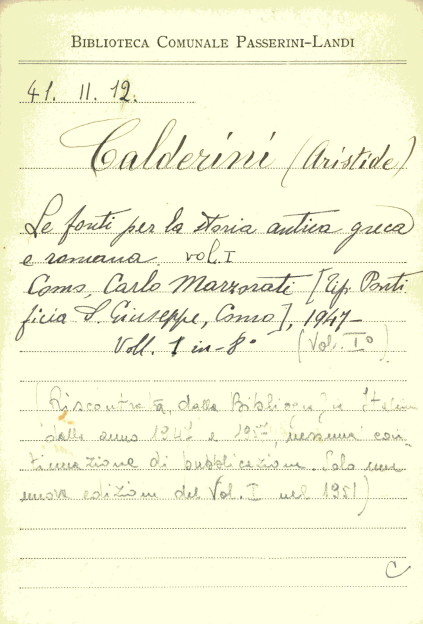 BIBLIOTECA COMUNALE PASSERINI-LANDI
41. II. 12.
Calderini (Aristide)
Le fonti per la storia antica greca
e romana. vol. I
Como, Carlo Marzorati [Tip. Ponti
ficia S. Giuseppe, Como], 1947-
Voll. 1 in-8° (Vol. I°)
(Riscontrata, dalla Bibliografia Italiana
dalla anno 1947 e 1957, nessuna con-
tinuazione di pubblicazione. Solo una
nuova edizione del Vol. I nel 1951)
C